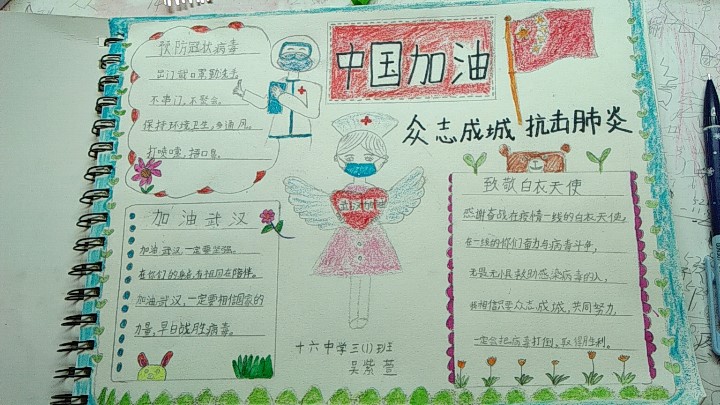 中国加油
众志成城 抗击肺炎
预防冠状病毒
出门戴口罩勤洗手
不串门,不聚会。
保持环境卫生,多通风。
打喷嚏,捂口鼻。
加油武汉
加油武汉,一定要坚强。
在你们的身后,有祖国在陪伴。
加油武汉,一定要相信国家的
力量,早日战胜病毒。
致敬白衣天使
感谢奋战在疫情一线的白衣天使,
在一线的你们奋力与病毒斗争,
无畏无惧救助感染病毒的人,
我相信只要众志成城,共同努力,
一定会把病毒打倒,取得胜利。
十六中学三(1)班
吴紫萱